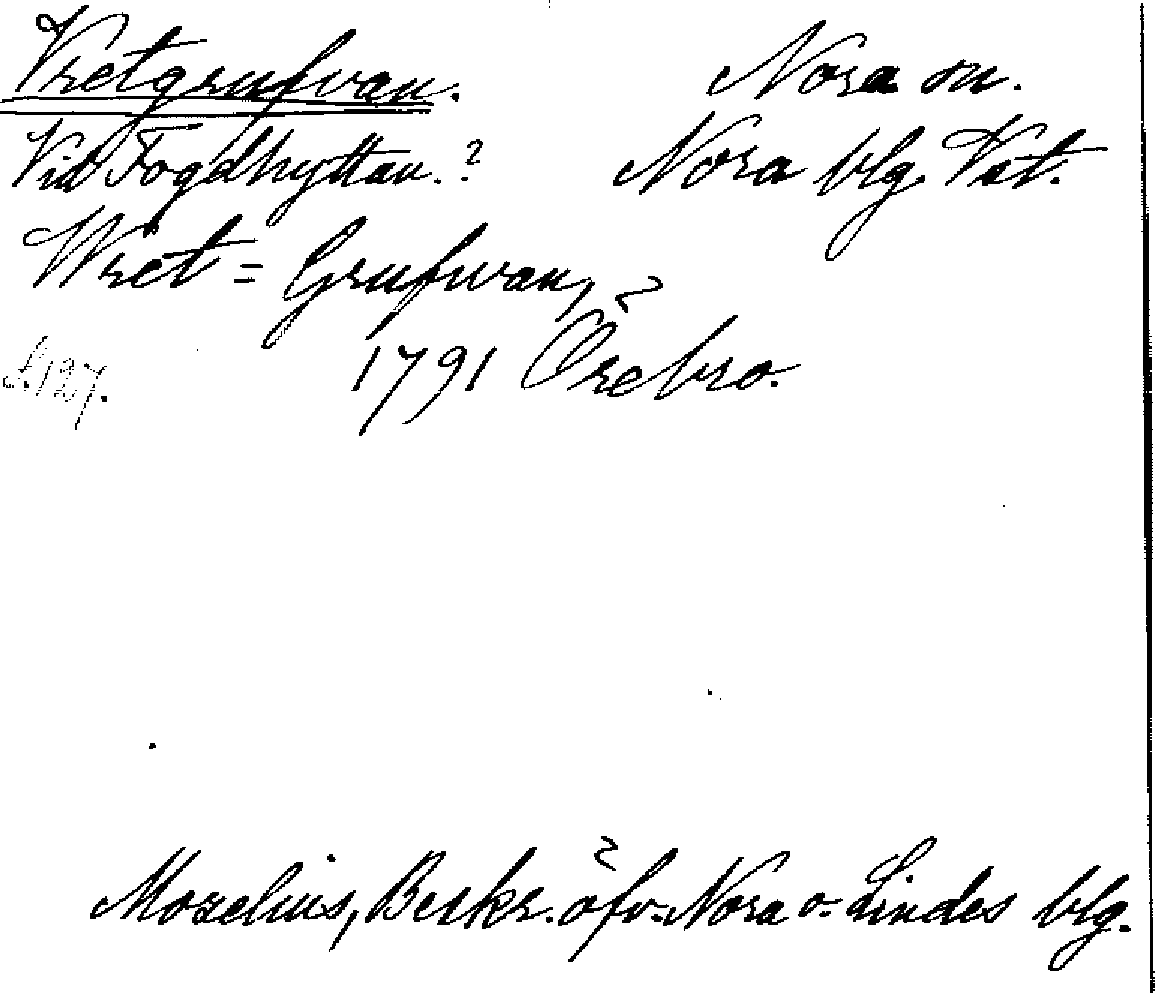 Vretgrufvan. Nora sn.
Vid Fogdhyttan.? Nora blg. Vst.
Wret = Grufwan,
s. 127. 1791 Örebro.
Mozelius, Beskr. öfv. Nora o. Lindes blg.